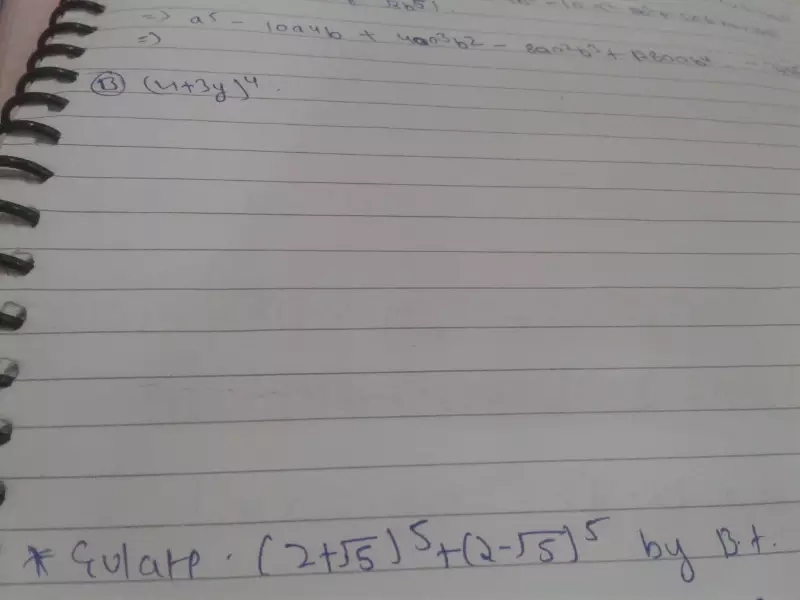 => a5 - 10a4b + 40a3b2 - 80a2b3 +
=>
(13) (x+3y)^4.
* Evlate. (2+√5)^5+(2-√5)^5 by B.t.